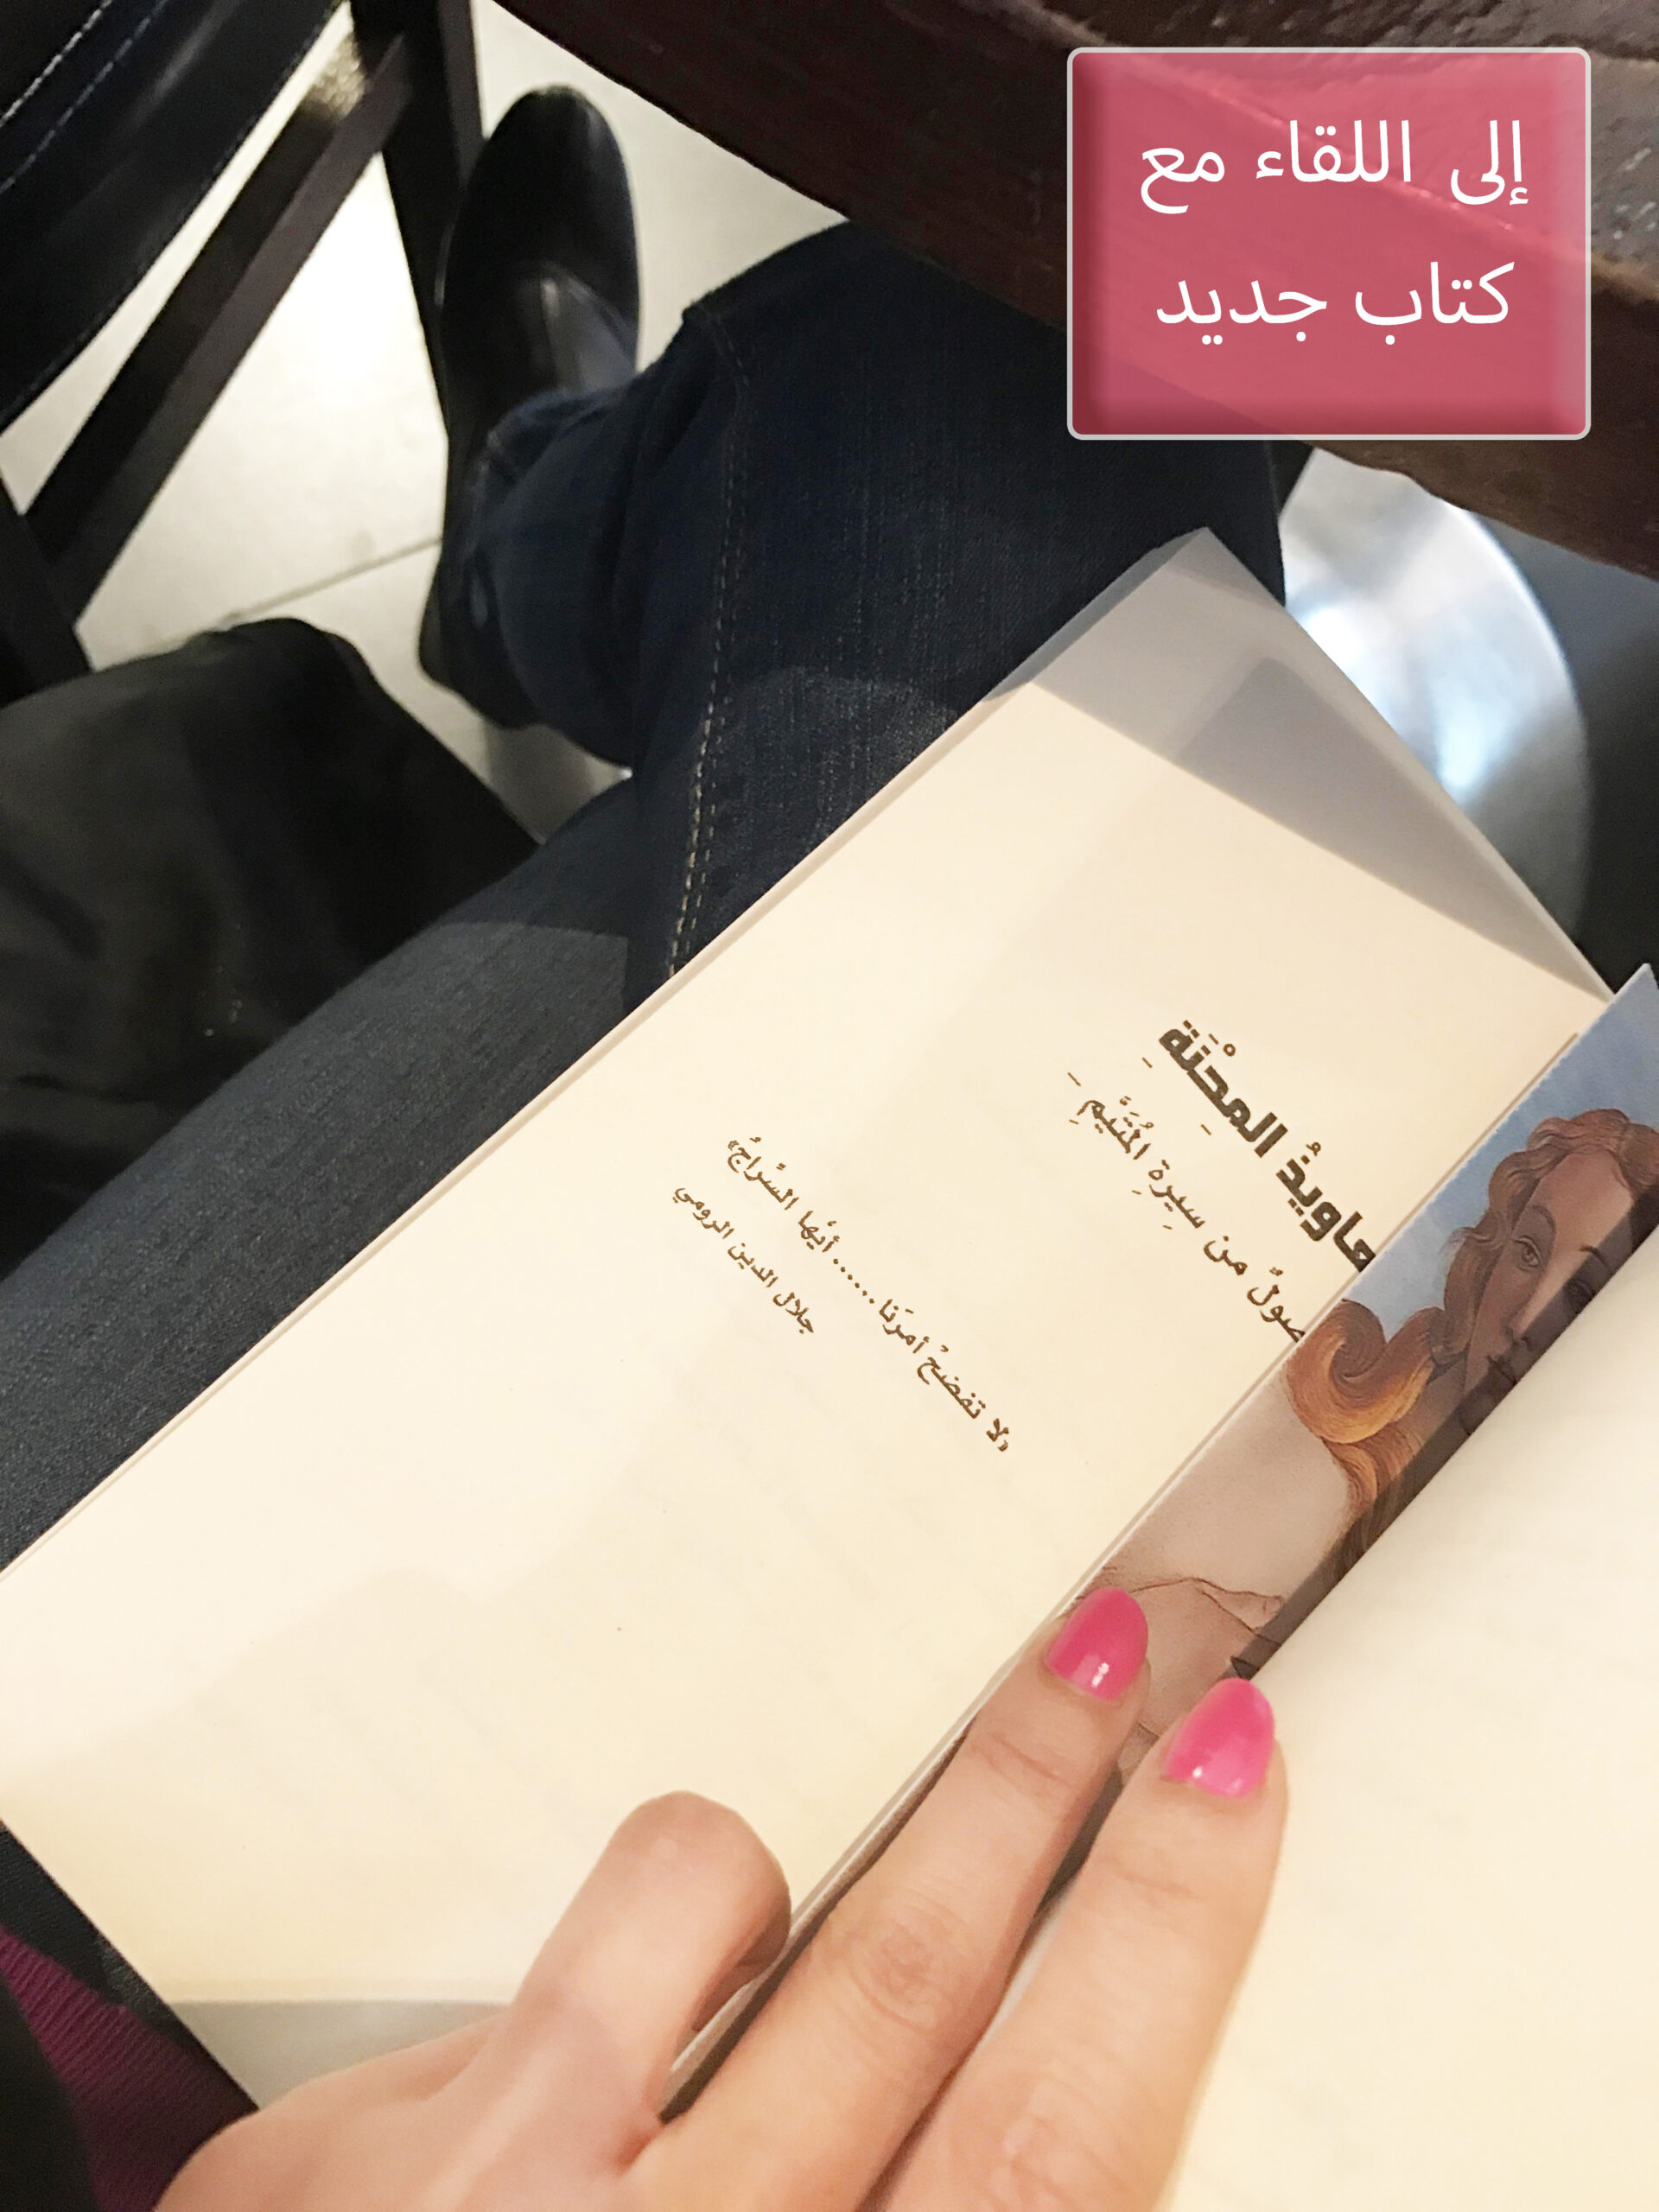 إلى اللقاء مع
كتاب جديد
عاويذُ المِحْنَةِ
صولٌ من سيرِةِ المُتَيَّمِ
«لا تفضحْ أمرَنا...... أيّها السّراجُ»
جلال الدين الرومي